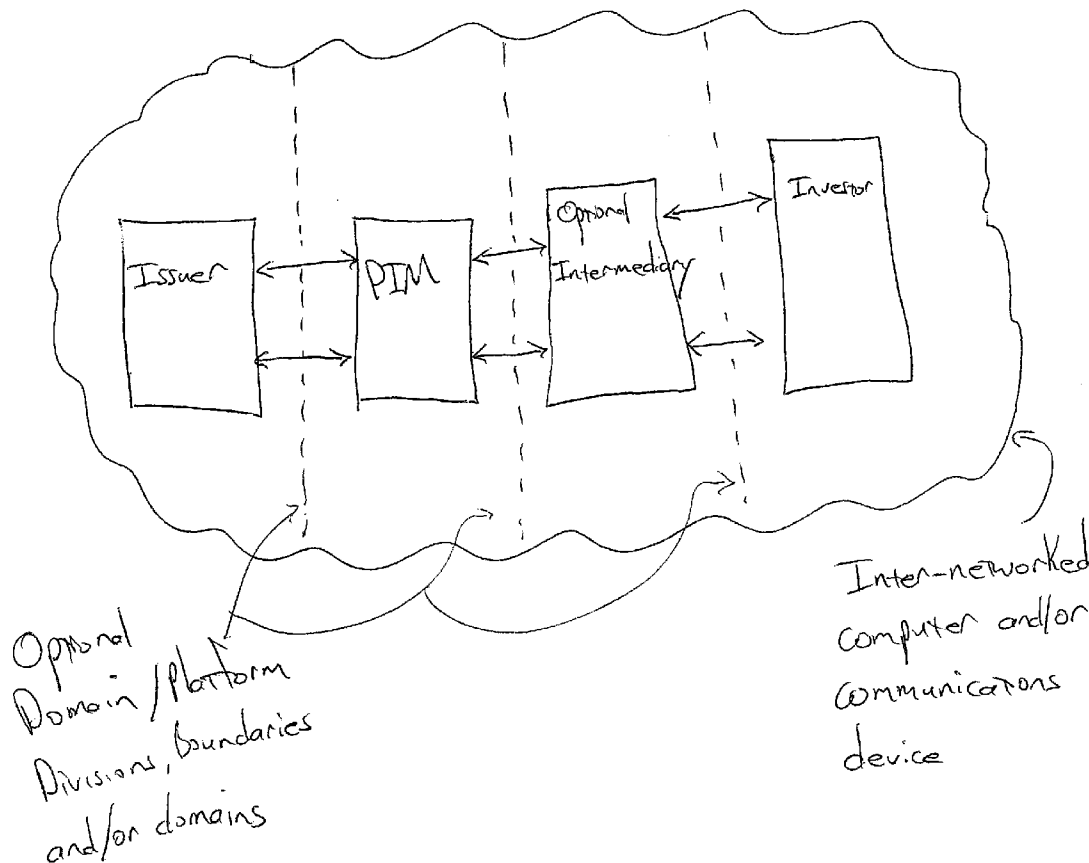 Issuer
PIM
Optional
Intermediary
Investor
Optional
Domain/Platform
Divisions, boundaries
and/or domains
Inter-networked
computer and/or
communications
device